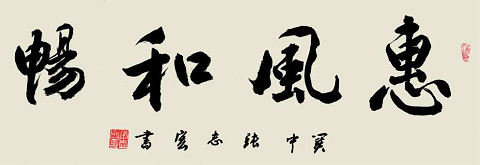 惠風和暢
关中張志宏書